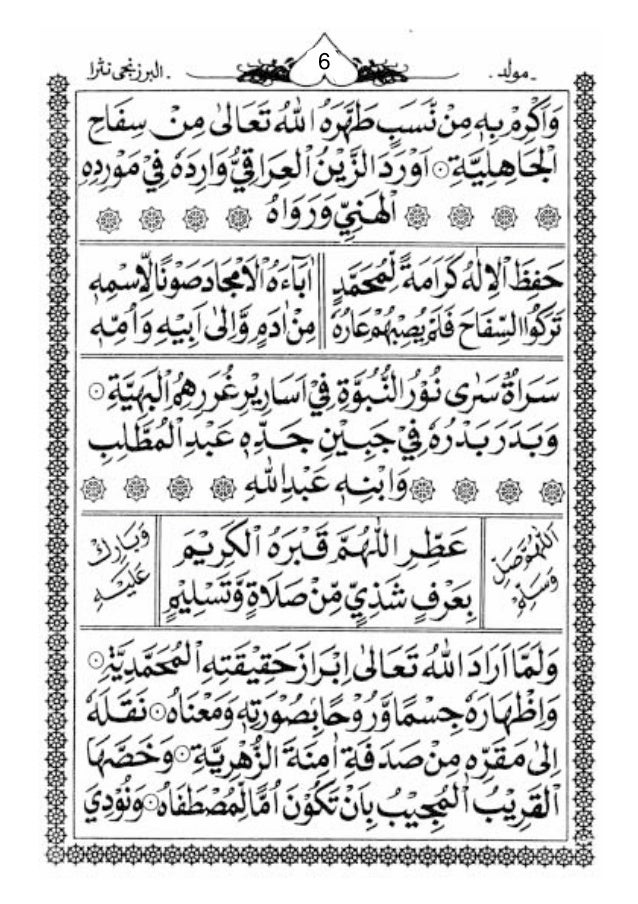 مولد
6
البرزنجي نثرا
وَأَكْرِمْ بِهِ مِنْ نَسَبٍ طَهَّرَهُ اللهُ تَعَالَى مِنْ سِفَاحِ
الْجَاهِلِيَّةِ ۝ اَوْرَدَ الزَّيْنُ الْعِرَاقِيُّ وَارِدَهُ فِيْ مَوْرِدِهِ
الْهَنِيِّ وَرَوَاهُ
حَفِظَ الْاِلٰهُ كَرَامَةً لِّمُحَمَّدٍ اٰبَآءَهُ الْاَمْجَادَ صَوْنًا لِّاسْمِهِ
تَرَكُوا السِّفَاحَ فَلَمْ يُصِبْهُمْ عَارُهُ مِنْ اٰدَمٍ وَّاِلٰى اَبِيْهِ وَاُمِّهِ
سَرَاةٌ سَرٰى نُوْرُ النُّبُوَّةِ فِيْ اَسَارِيْرِ غُرَرِهِمُ الْبَهِيَّةِ ۝
وَبَدَرَ بَدْرُهُ فِيْ جَبِيْنِ جَدِّهِ عَبْدِ الْمُطَّلِبِ
وَابْنِهِ عَبْدِ اللهِ
عَطِّرِ اللّٰهُمَّ قَبْرَهُ الْكَرِيْمَ
بِعَرْفٍ شَذِيٍّ مِّنْ صَلَاةٍ وَّتَسْلِيْمٍ
اَللّٰهُمَّ صَلِّ
وَسَلِّمْ
وَبَارِكْ
عَلَيْهِ
وَلَمَّا اَرَادَ اللهُ تَعَالٰى اِبْرَازَ حَقِيْقَتِهِ الْمُحَمَّدِيَّةِ ۝
وَاِظْهَارَهُ جِسْمًا وَّرُوْحًا بِصُوْرَتِهِ وَمَعْنَاهُ ۝ نَقَلَهُ
اِلٰى مَقَرِّهِ مِنْ صَدَفَةِ اٰمِنَةَ الزُّهْرِيَّةِ ۝ وَخَصَّهَا
الْقَرِيْبُ الْمُجِيْبُ بِاَنْ تَكُوْنَ اُمًّا لِّمُصْطَفَاهُ ۝ وَنُوْدِيَ